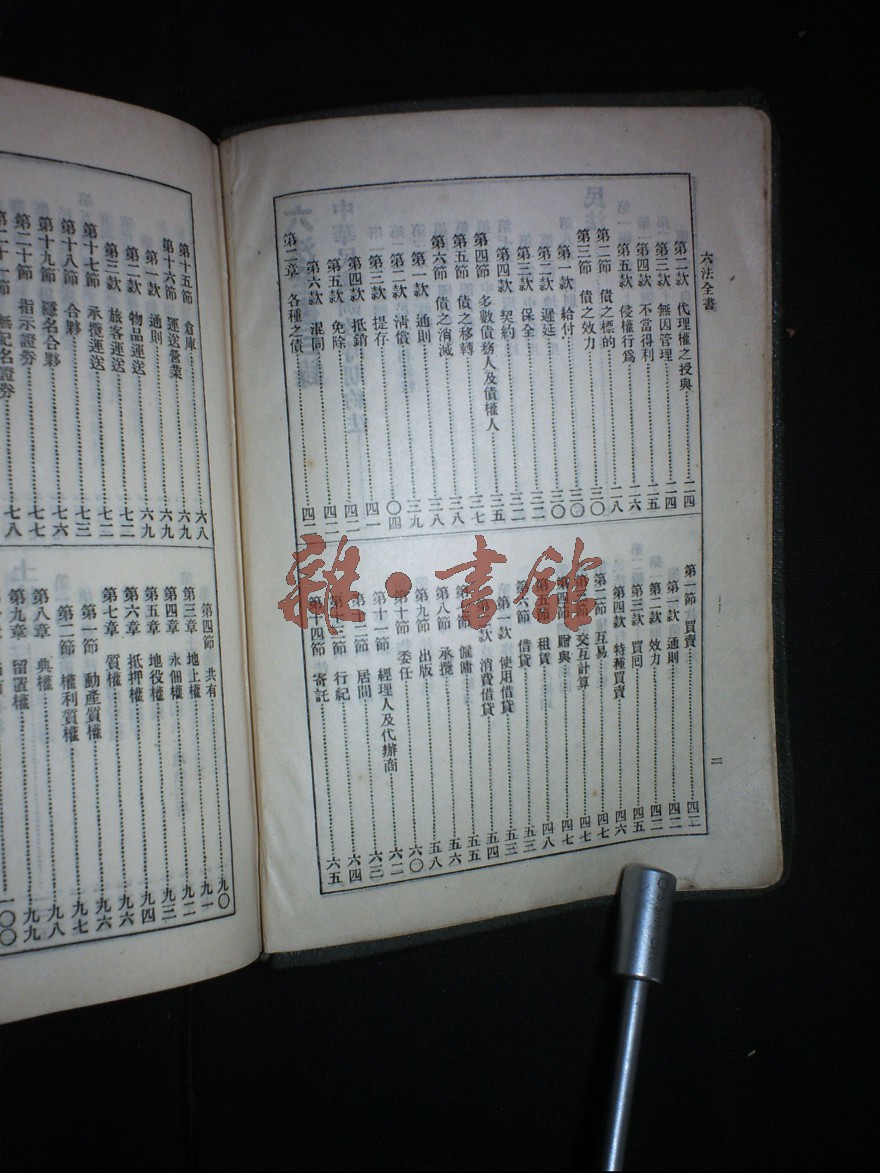 六法全書
第二款 代理權之授與 二四
第三款 無因管理 二四
第四款 不當得利 二五
第五款 侵權行爲 二六
第二節 債之標的 二八
第三節 債之效力 三〇
第一款 給付 三〇
第二款 遲延 三〇
第三款 保全 三二
第四款 契約 三二
第四節 多數債務人及債權人 三五
第五節 債之移轉 三七
第六節 債之消滅 三八
第一款 通則 三八
第二款 清償 三九
第三款 提存 四〇
第四款 抵銷 四一
第五款 免除 四二
第六款 混同 四二
第二章 各種之債 四二
第一節 買賣 四二
第一款 通則 四二
第二款 效力 四二
第三款 買回 四五
第四款 特種買賣 四六
第二節 互易 四七
第三節 交互計算 四七
第四節 贈與 四七
第五節 租賃 四八
第六節 借貸 五三
第一款 使用借貸 五三
第二款 消費借貸 五四
第七節 僱傭 五五
第八節 承攬 五六
第九節 出版 五八
第十節 委任 六〇
第十一節 經理人及代辦商 六二
第十二節 居間 六三
第十三節 行紀 六四
第十四節 寄託 六五
二
第十五節 倉庫 六八
第十六節 運送營業 六九
第一款 通則 六九
第二款 物品運送 六九
第三款 旅客運送 七二
第十七節 承攬運送 七三
第十八節 合夥 七三
第十九節 隱名合夥 七六
第二十節 指示證券 七七
第二十一節 無記名證券 七八
第四節 共有 九〇
第三章 地上權 九一
第四章 永佃權 九二
第五章 地役權 九三
第六章 抵押權 九四
第七章 質權 九六
第一節 動產質權 九六
第二節 權利質權 九七
第八章 典權 九八
第九章 留置權 九九
一〇〇
雜·書館